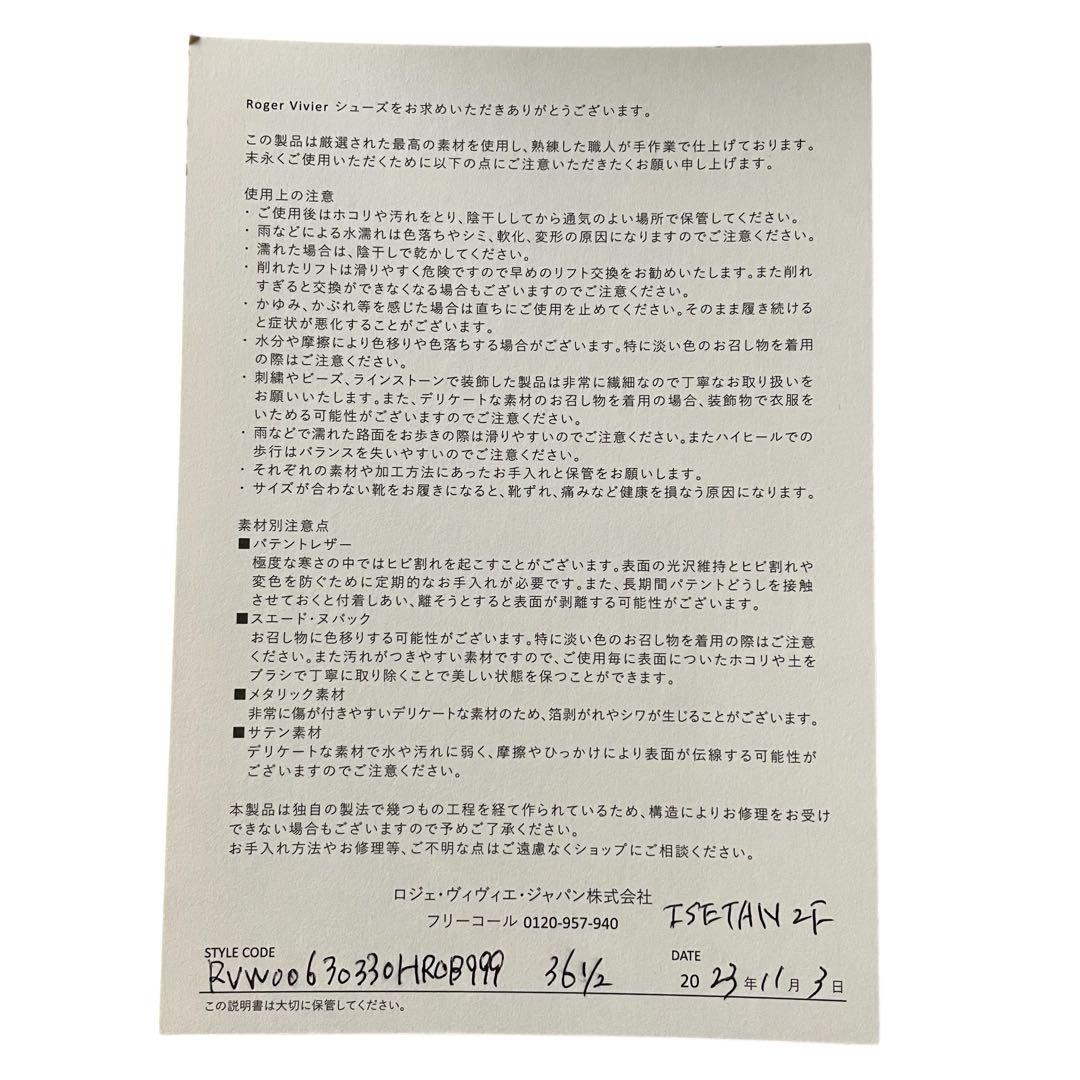 Roger Vivier シューズをお求めいただきありがとうございます。
この製品は厳選された最高の素材を使用し、熟練した職人が手作業で仕上げております。
末永くご使用いただくために以下の点にご注意いただきたくお願い申し上げます。
使用上の注意
・ご使用後はホコリや汚れをとり、陰干ししてから通気のよい場所で保管してください。
・雨などによる水濡れは色落ちやシミ、軟化、変形の原因になりますのでご注意ください。
・濡れた場合は、陰干しで乾かしてください。
・削れたリフトは滑りやすく危険ですので早めのリフト交換をお勧めいたします。また削れ
すぎると交換ができなくなる場合もございますのでご注意ください。
・かゆみ、かぶれ等を感じた場合は直ちにご使用を止めてください。そのまま履き続ける
と症状が悪化することがございます。
・水分や摩擦により色移りや色落ちする場合がございます。特に淡い色のお召し物を着用
の際はご注意ください。
・刺繍やビーズ、ラインストーンで装飾した製品は非常に繊細なので丁寧なお取り扱いを
お願いいたします。また、デリケートな素材のお召し物を着用の場合、装飾物で衣服を
いためる可能性がございますのでご注意ください。
・雨などで濡れた路面をお歩きの際は滑りやすいのでご注意ください。またハイヒールでの
歩行はバランスを失いやすいのでご注意ください。
・それぞれの素材や加工方法にあったお手入れと保管をお願いします。
・サイズが合わない靴をお履きになると、靴ずれ、痛みなど健康を損なう原因になります。
素材別注意点
■パテントレザー
極度な寒さの中ではヒビ割れを起こすことがございます。表面の光沢維持とヒビ割れや
変色を防ぐために定期的なお手入れが必要です。また、長期間パテントどうしを接触
させておくと付着しあい、離そうとすると表面が剥離する可能性がございます。
■スエード・ヌバック
お召し物に色移りする可能性がございます。特に淡い色のお召し物を着用の際はご注意
ください。また汚れがつきやすい素材ですので、ご使用毎に表面についたホコリや土を
ブラシで丁寧に取り除くことで美しい状態を保つことができます。
■メタリック素材
非常に傷が付きやすいデリケートな素材のため、箔剥がれやシワが生じることがございます。
■サテン素材
デリケートな素材で水や汚れに弱く、摩擦やひっかけにより表面が伝線する可能性が
ございますのでご注意ください。
本製品は独自の製法で幾つもの工程を経て作られているため、構造によりお修理をお受け
できない場合もございますので予めご了承ください。
お手入れ方法やお修理等、ご不明な点はご遠慮なくショップにご相談ください。
ロジェ・ヴィヴィエ・ジャパン株式会社
フリーコール 0120-957-940 ISETAN 2F
STYLE CODE DATE
RVW00630330HR0B999 36 1/2 2023年11月3日
この説明書は大切に保管してください。